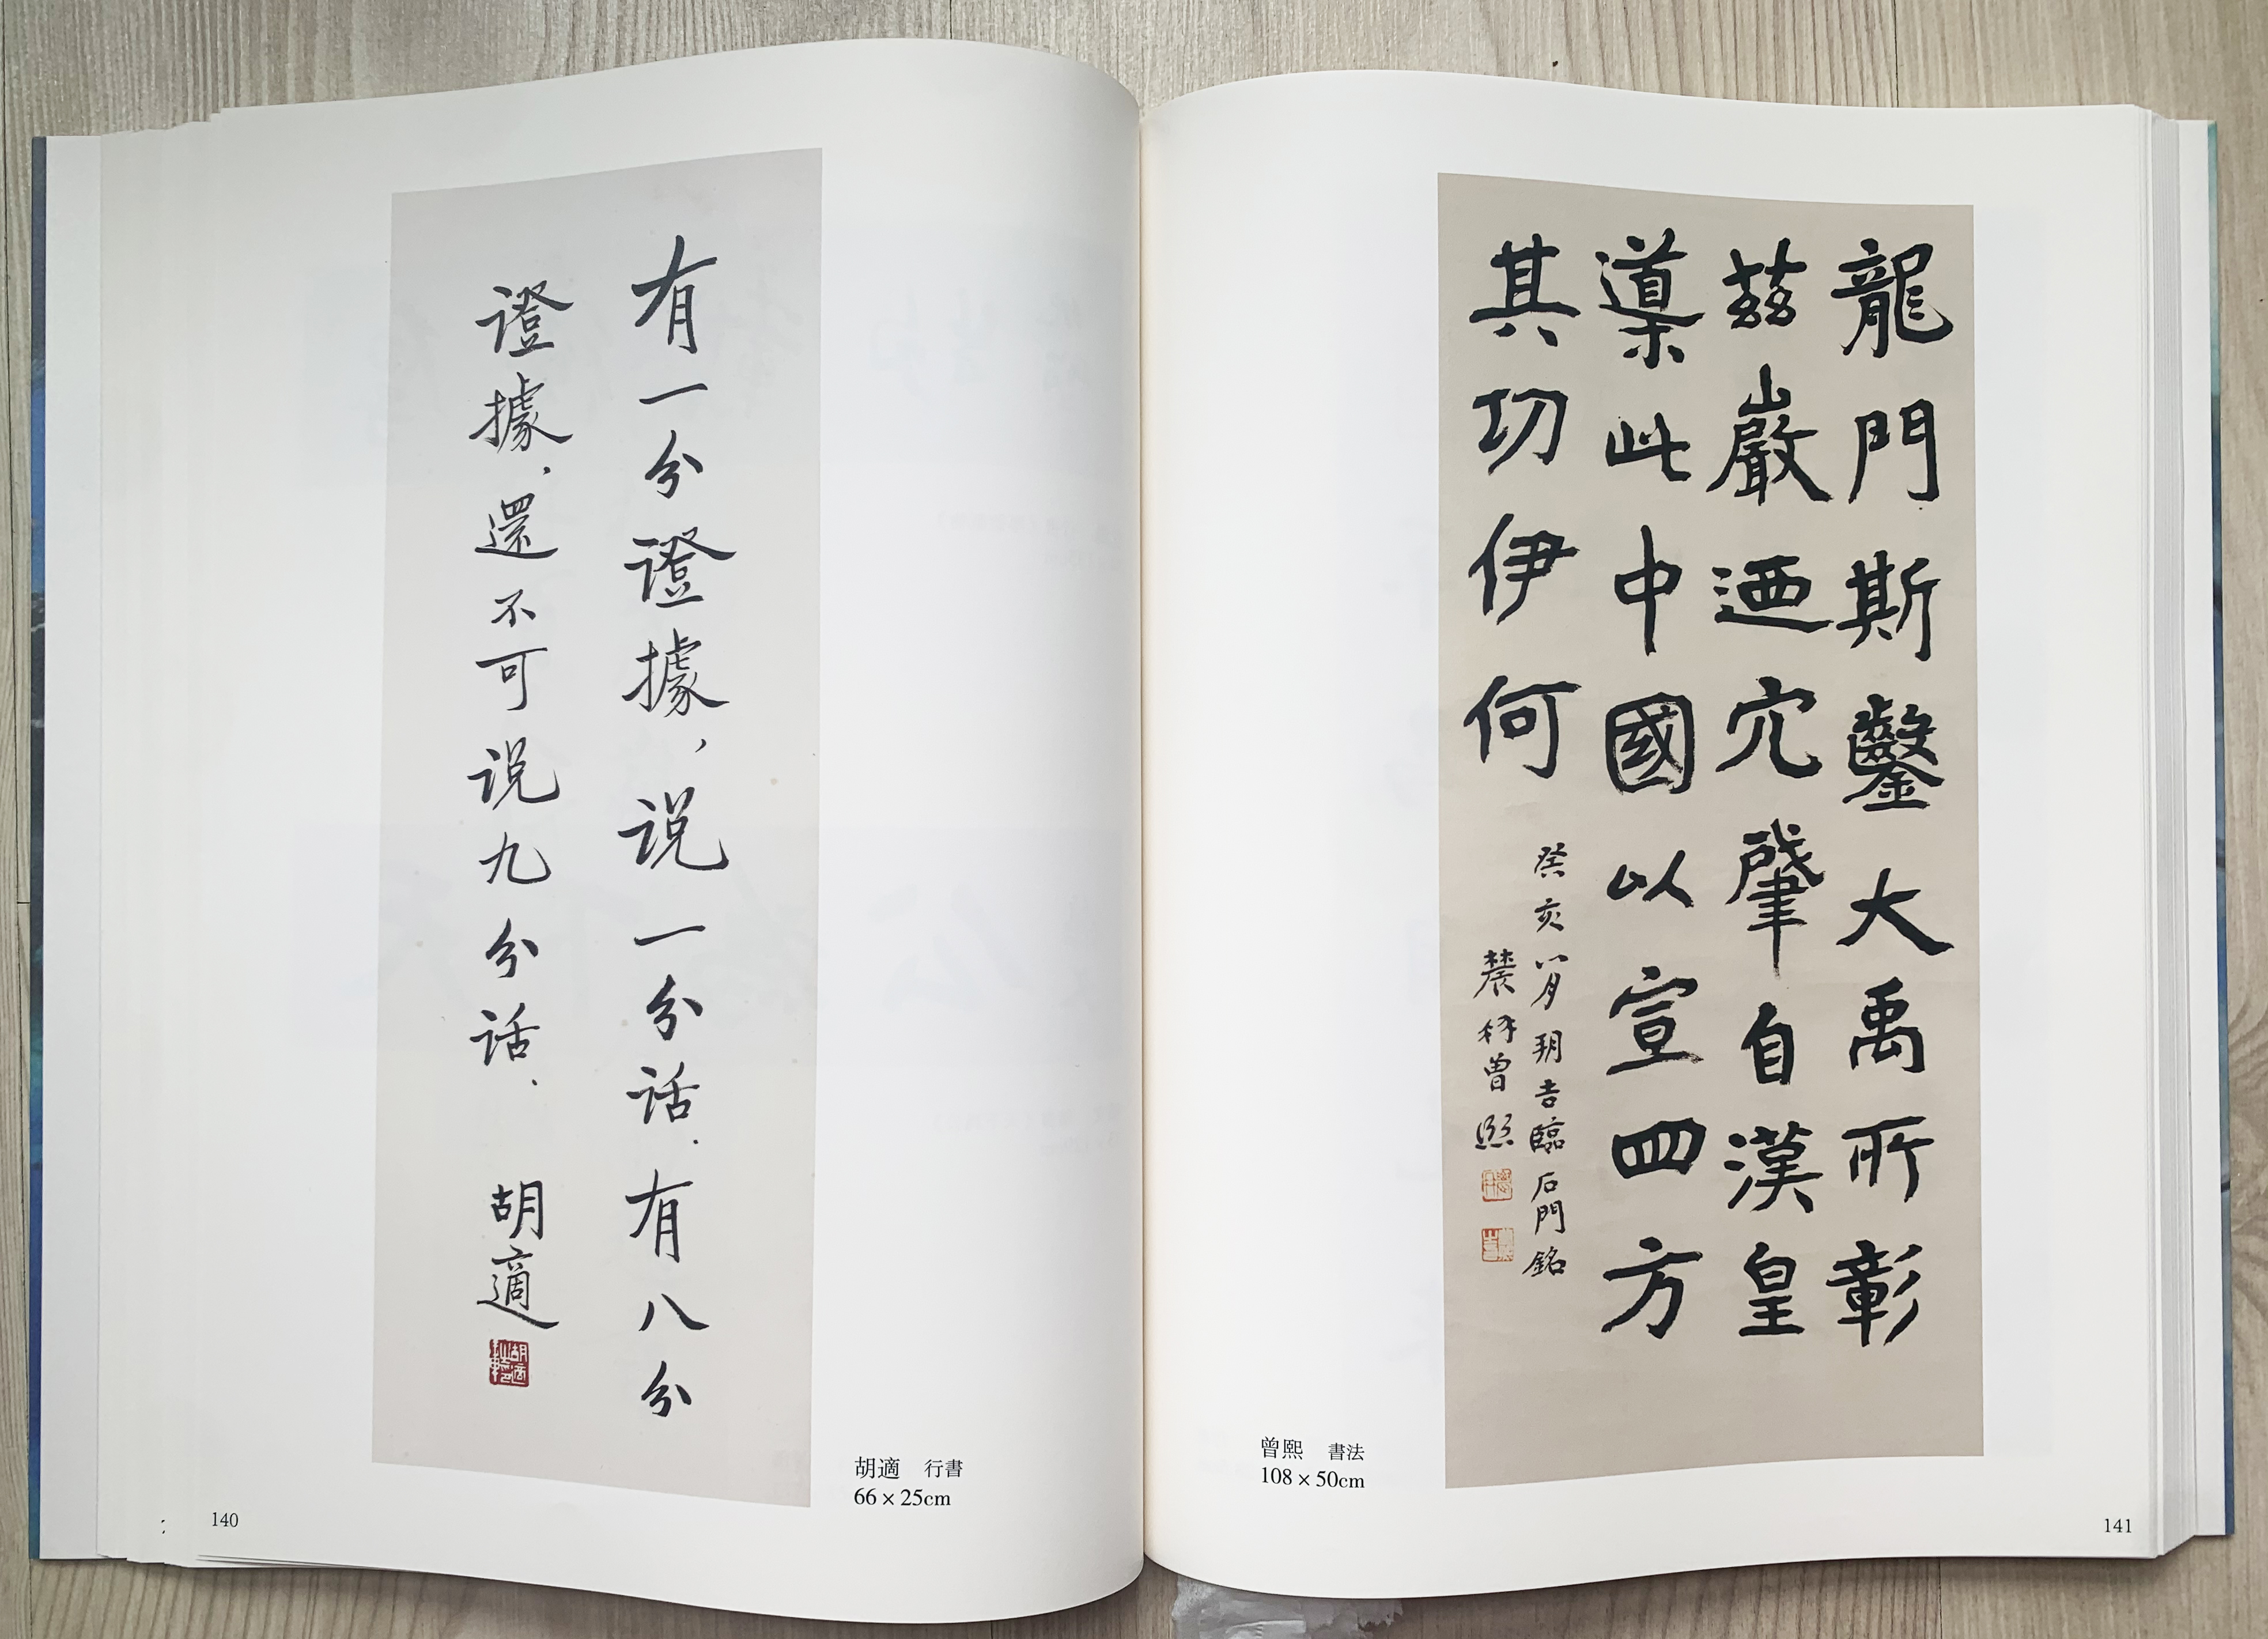 有一分證據，说一分话．有八分
證據，還不可说九分话．
胡適
胡適 行書
66×25cm
140
龍門斯鑿大禹所彰
兹巖迺穴肇自漢皇
導此中國以宣四方
其功伊何
癸亥八月朔吉臨石門銘
農髯曾熙
曾熙 書法
108×50cm
141